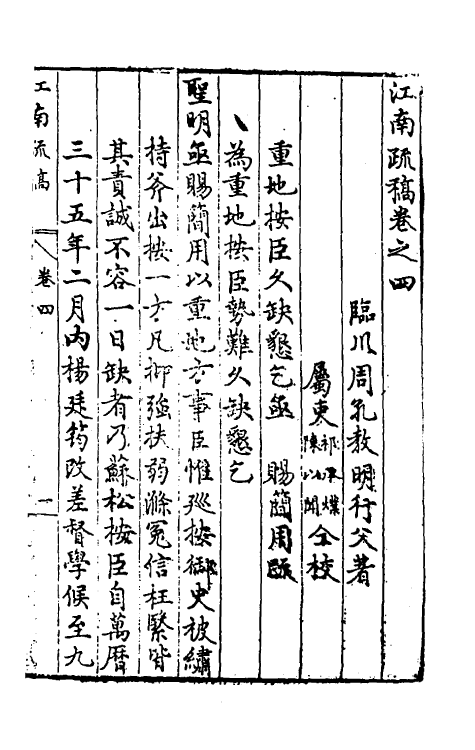 江南疏稿卷之四
臨川周孔教明行父著
屬吏祁承㸁陳以聞仝校
重地按臣久缺懇乞亟 賜簡用疏
丶為重地按臣勢難久缺懇乞
聖明亟賜簡用以重地方事臣惟廵按御史被繡
持斧出按一方凡抑強扶弱滌冤信枉緊皆
其責誠不容一日缺者乃蘇松按臣自萬曆
三十五年二月內楊廷筠改差督學候至九
江南疏稿
卷四
一